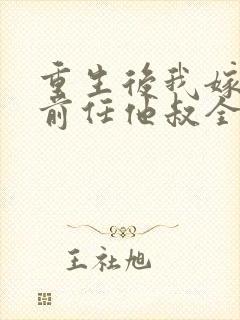 重生後我嫁
前任他叔全
王社旭